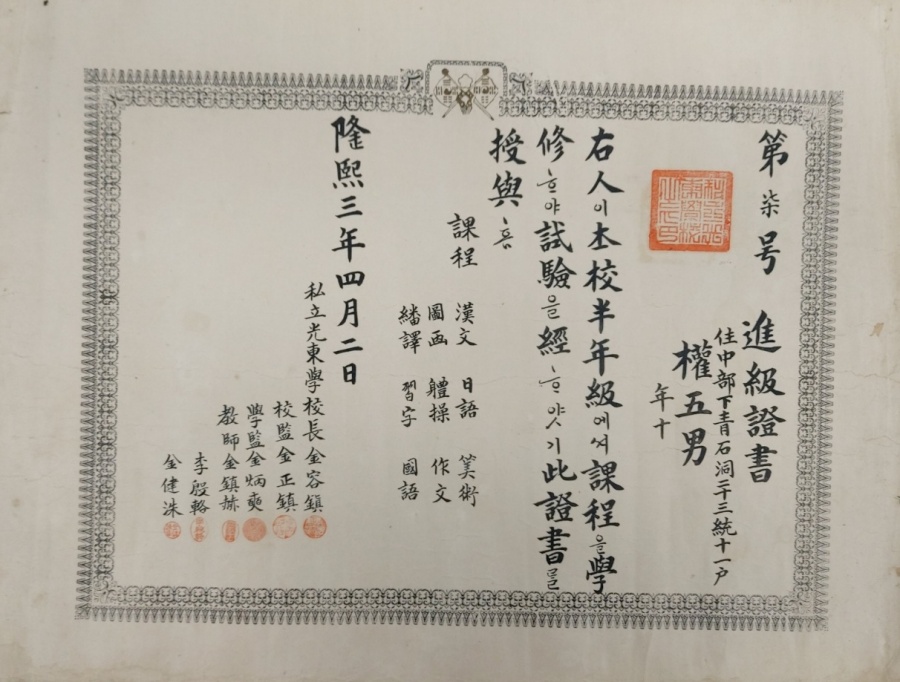 第柒号
進級證書
住中部下青石洞二十三統十一戶
權五男
年十
右人이本校半年級에셔課程을學
修ᄒᆞ야試驗을經ᄒᆞ얏기此證書를
授與홈
課程
漢文 日語 筭術
圖画 軆操 作文
繙譯 習字 國語
隆熙三年四月二日
私立光東學校長金容鎭
校監金正鎭
學監金炳奭
教師金鎭赫
李殷輅
金健洙